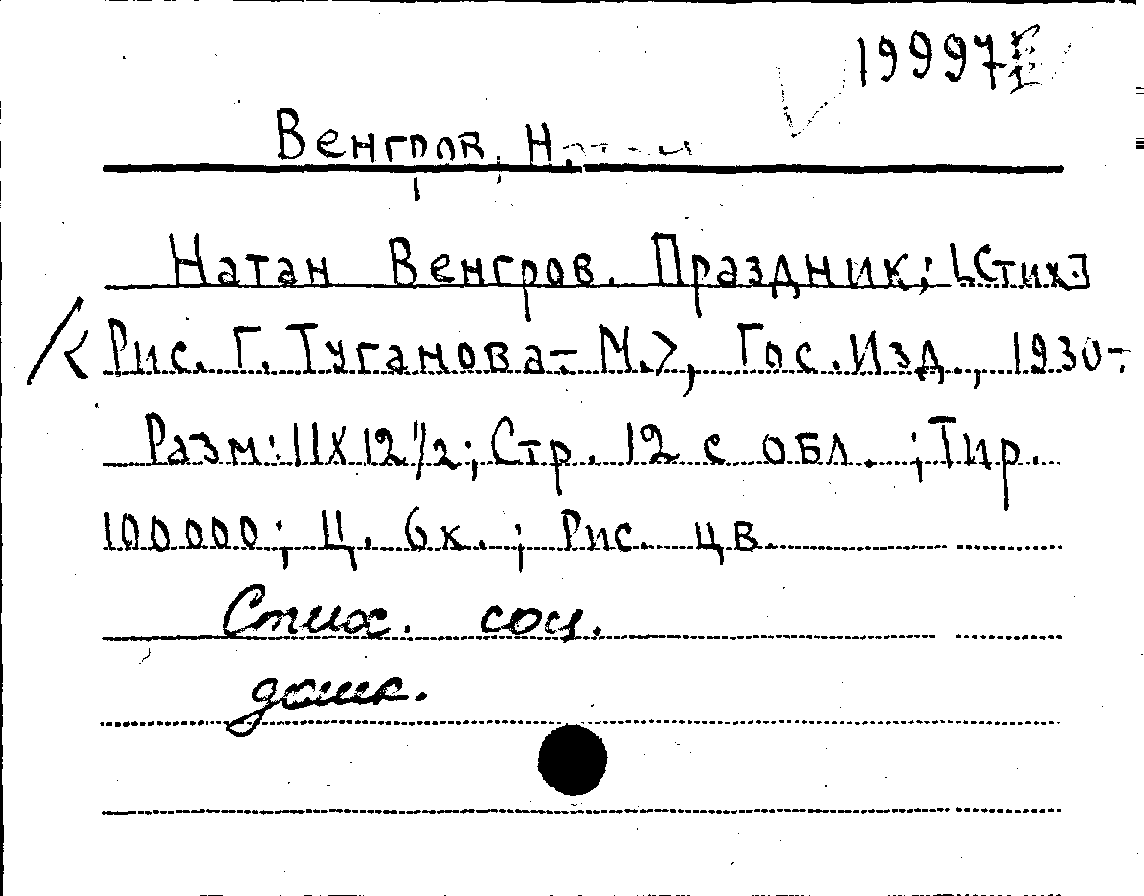 19997
Венгров, Н.
Натан Венгров. Праздник; [Стих.]
Рис. Г. Туганова.- М.>, Гос.Изд., 1930.-
Разм: 11х12 1/2; Стр. 12 с обл. ; Тир.
100000; Ц. 6к. ; Рис. цв.
Стих. соц.
дошк.